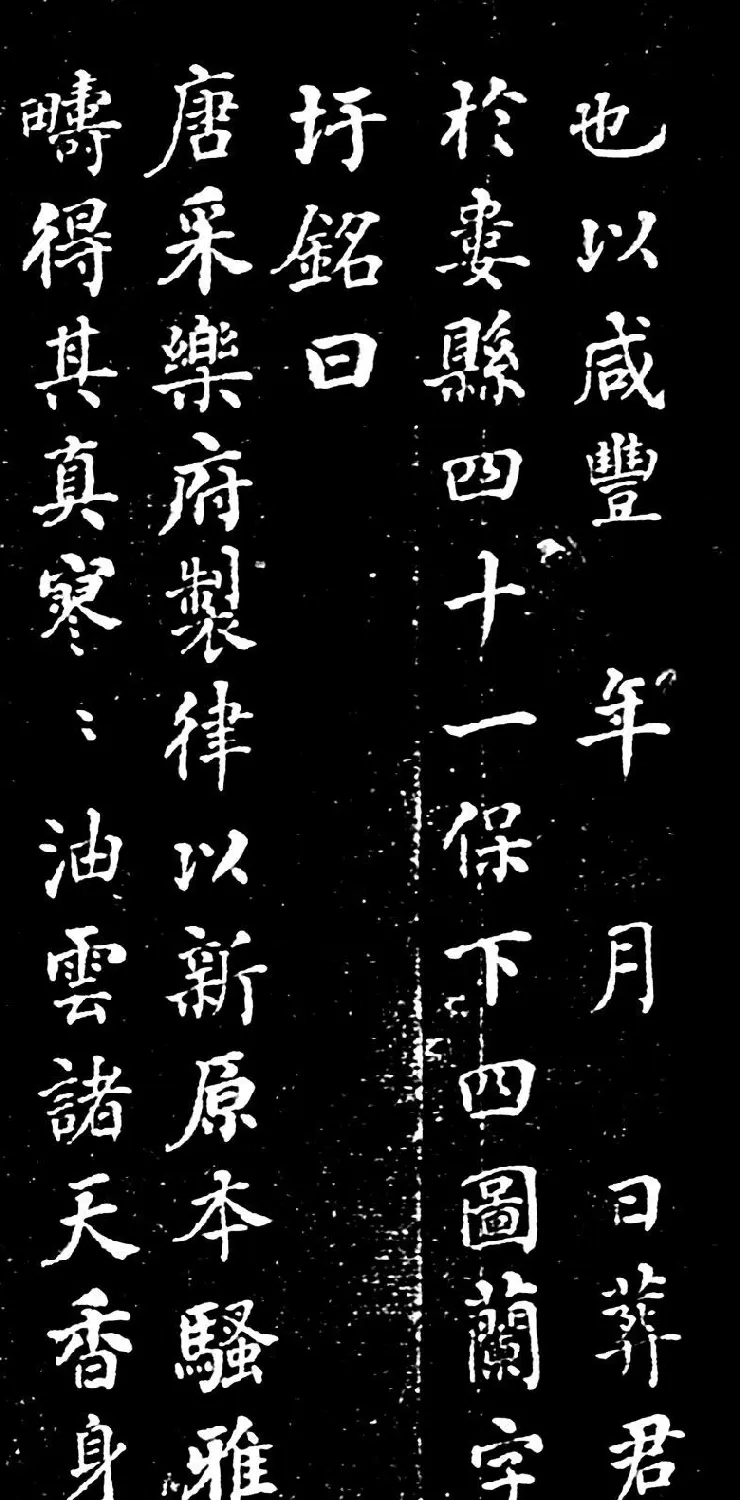 也以咸豐年月日葬君
於婁縣四十一保下四圖蘭字
圩銘曰
唐采樂府製律以新原本騷雅
疇得其真寥〻油雲諸天香身